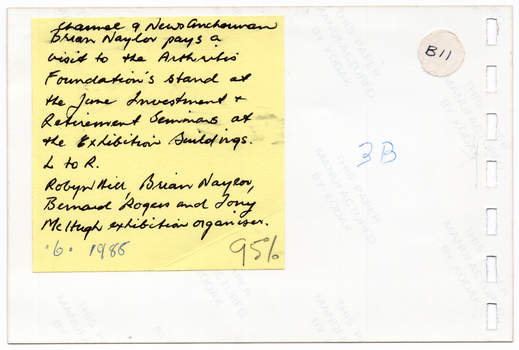 Channel 9 News Anchorman
Brian Naylor pays a
visit to the Arthritis
Foundation's stand at
the June Investment +
Retirement Seminars at
the Exhibition Buildings.
L to R.
Robyn Hill, Brian Naylor,
Bernard Rogers and Tony
McHugh exhibition organiser.
6. 1986
95%
B11
3B
THIS PAPER
MANUFACTURED
BY KODAK